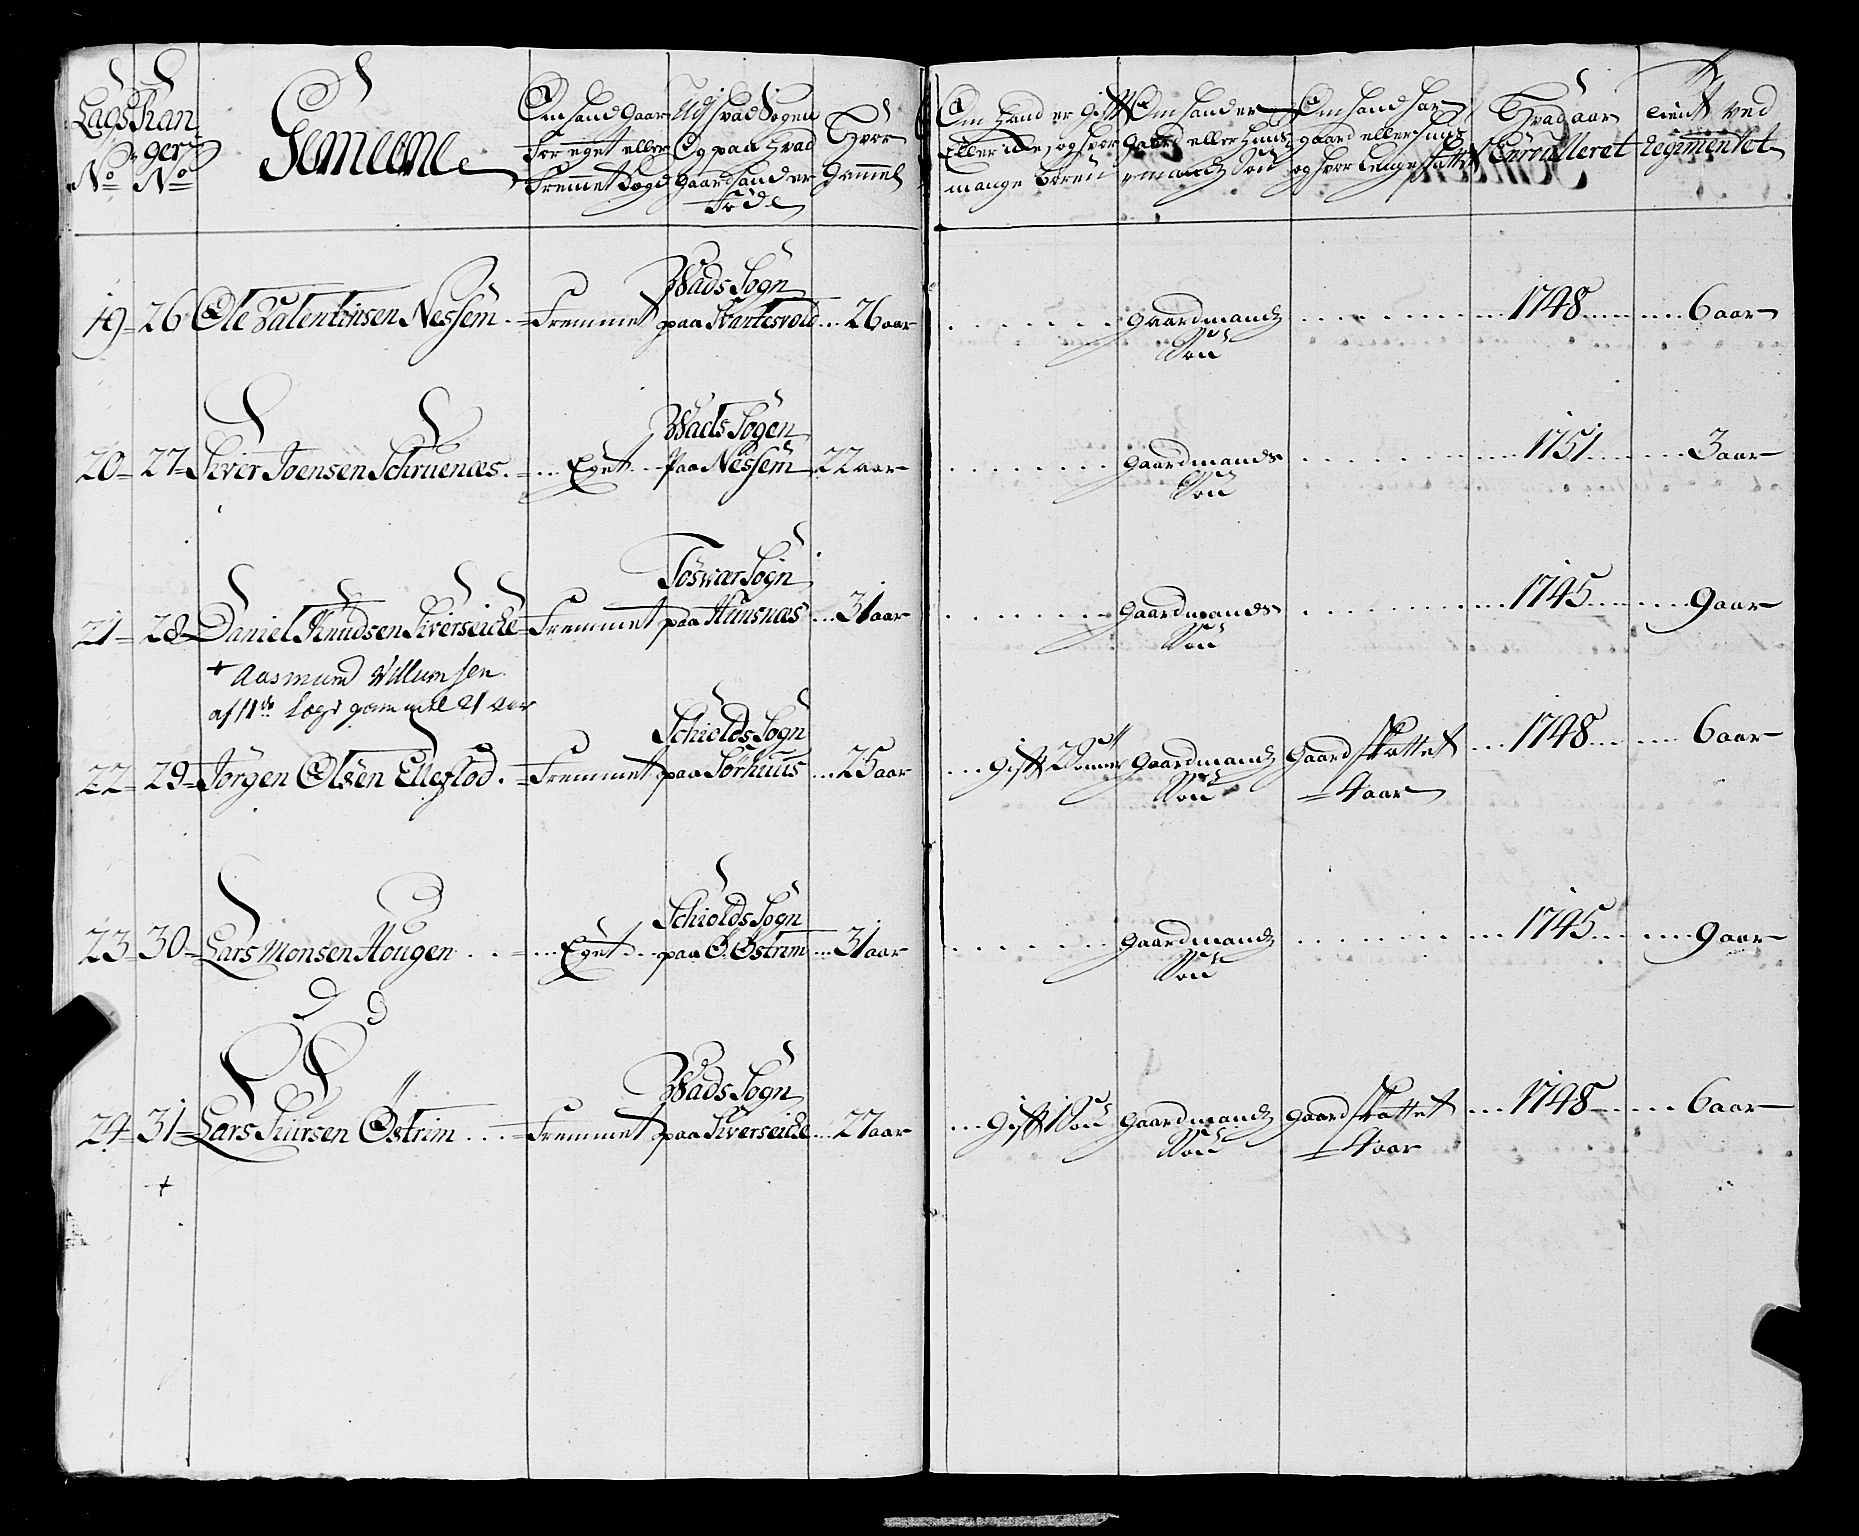 Lægs Ran-
ger
No No
Gemeene
Om hand Gaar
For eget eller
Fremmet Lægd
Ud hvad Sogen
Og paa hvad
Gaard hand er
Føde
Hvor
Gammel
Om Hand er Gift
Eller Ey og hvor
mange Børen
Om hand er
Gaard eller Huus
mandz Søn
Om hand har
gaard eller huus
og hvor lenge skattet
Hvad aar
Enroulleret
tient ved
Regimentet
19 26 Ole Valentinsen Nessem Fremmet Wads Sogn paa Svartesvold 26 aar Gaardmandz Søn 1748 6 aar
20 27 Siver Joensen Schruenæs Eget Wads Sogen Paa Nessem 22 aar Gaardmands Søn 1751 3 aar
21 28 Daniel Knudsen Siverseide Fremmet Tösvær Sogn paa Hunsnæs 31 aar Gaardmands Søn 1745 9 aar
+ Aasmund Villumsen
af 11te Lægd gammell 21 aar
22 29 Jørgen Olsen Ellefsød Fremmet Schiolds Sogn paa Sørhuus 25 aar Gift Gaardmandz Søn Gaard skattet 4 aar 1748 6 aar
23 30 Lars Monsen Hougen Eget Schiolds Sogn paa Ö. Östrim 31 aar Gaardmandz Søn 1745 9 aar
24 31 Lars Siursen Östrim Fremmet Wads Sogn paa Siverseide 27 aar Gift 1 Søn Gaardmandz Søn Gaard skattet 4 aar 1748 6 aar
+